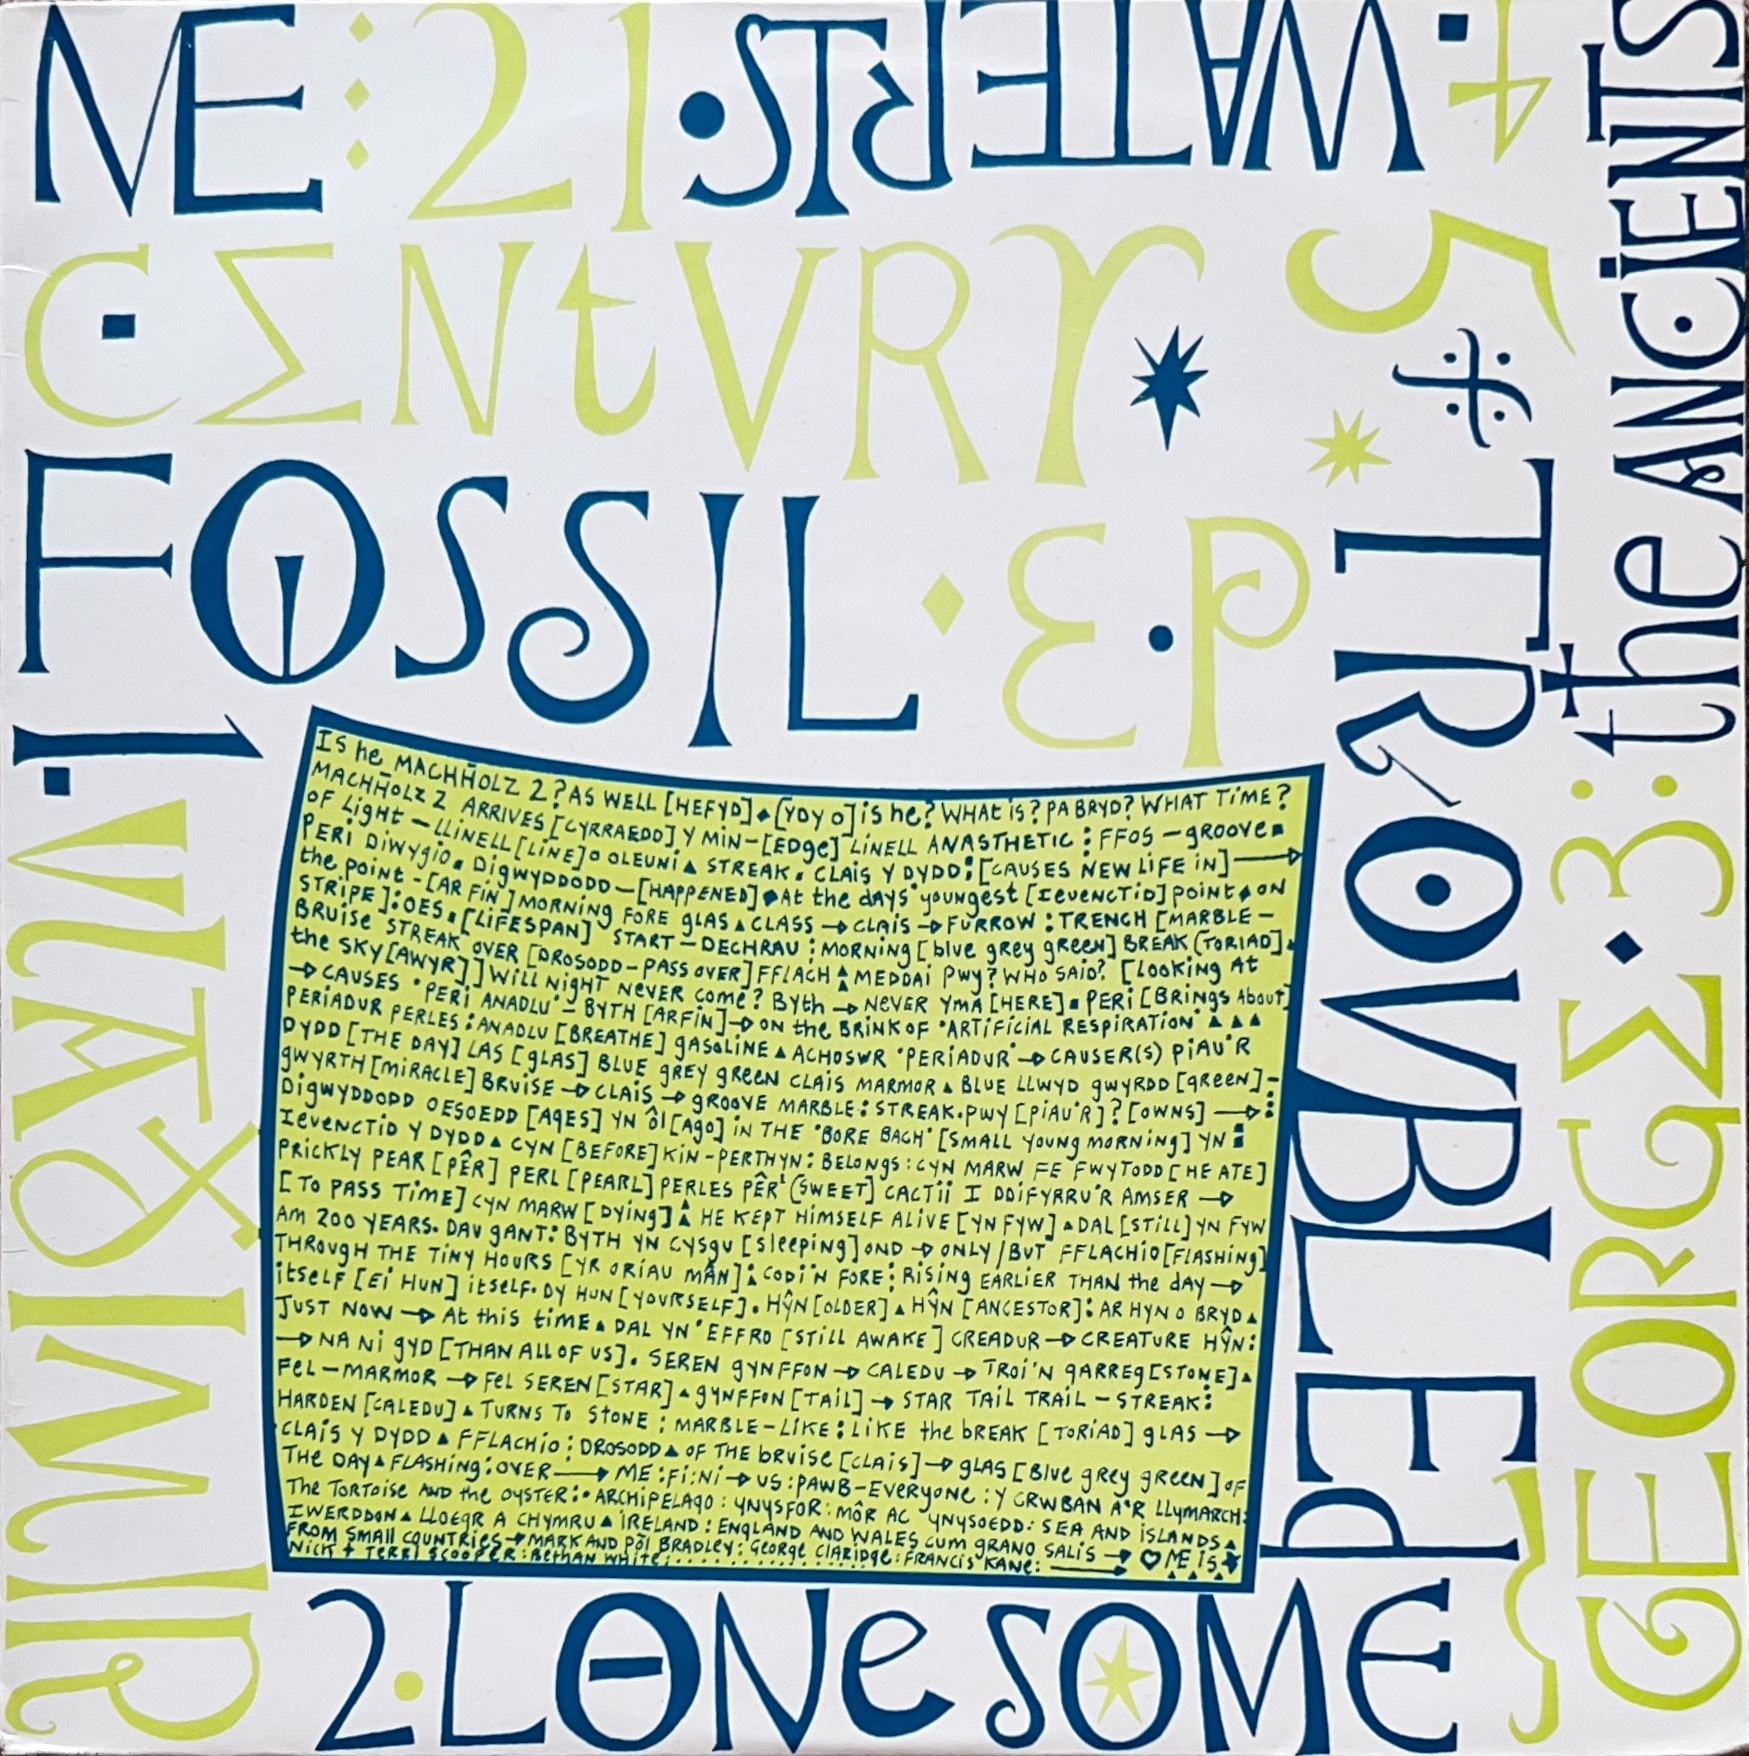 ME 21
CENtVRY
FOSSIL • EP
2 • LONeSOME
GEORGE 3: the ANCiENTS
4 •
5 TROVBLEd
1 •
Is he MACHHOLZ 2? AS WELL [HEFYD] ♦ [YDY O] is he? WHAT is? PA BRYD? WHAT TiME?
MACHHOLZ 2 ARRIVES [CYRRAEDD] Y MiN – [EDge] LiNELL ANASTHETIC : FFOS – gROOVE ■
OF LigHT – LLiNELL [LiNE] O OLEUNi ▲ STREAK ▪ CLAiS Y DYDD : [CAUSES NEW LiFE iN] →
PERi DiwYgiO ▪ DigWYDDODD – [HAPPENED] ♦ At the days' youngest [IEVENCTiD] POiNT ♦ ON
the point – [AR FiN] MORNiNg FORE gLAS ▲ CLASS → CLAiS → FURROW : TRENCH [MARBLE –
STRiPE] : OES ▪ [LiFESPAN] START – DECHRAU : MORNiNg [blue grey green] BREAK (TORiAD] ▪
BRUiSE STREAK OVER [DROSODD – PASS OVER] FFLACH ▲ MEDDAi PWY? WHO SAiD? [LOOKiNg AT
the SKY [AWYR]] WiLL NigHT NEVER COME? BYth → NEVER YMA [HERE] ▪ PERi [BRiNgs About]
→ CAUSES 'PERi ANADLU' – BYTH [ARFiN] → ON the BRiNK OF 'ARTiFiCiAL RESPiRATiON' ▲ ▲ ▲
PERiADUR PERLES : ANADLU [BREATHE] gASOLiNE ▲ ACHOSWR 'PERiADUR' → CAUSER(S) PiAU'R
DYDD [THE DAY] LAS [gLAS] BLUE GREY gREEN CLAiS MARMOR ▲ BLUE LLWYD gWYRDD [gREEN] –
gWYRTH [MiRACLE] BRUiSE → CLAiS → gROOVE MARBLE : STREAK. PWY [PiAU'R]? [OWNS] →
DigWYDDODD OESOEDD [AgES] YN ôl [AgO] iN THE 'BORE BACH' [SMALL YOUNg MORNiNg] YN :
IEVENCTiD Y DYDD ▲ CYN [BEFORE] KiN – PERTHYN : BELONgs : CYN MARW FE FWYTODD [HE ATE]
PRiCKLY PEAR [PÊR] PERL [PEARL] PERLES PÊR' (SWEET] CACTii I DDiFYRRU'R AMSER →
[TO PASS TiME] CYN MARW [DYiNg] ▲ HE KEPT HiMSELF ALiVE [YN FYW] ▲ DAL [STiLL] YN FYW
AM 200 YEARS. DAU gANT : BYTH YN CYSgU [Sleeping] OND → ONLY / BUT FFLACHiO [FLASHiNg]
THROUgH THE TiNY HOURS [YR ORiAU MÂN] ▲ CODi'N FORE : RiSiNg EARLiER THAN the day →
iTSELF [Ei HUN] itself. DY HUN [YOURSELF]. HŶN [OLDER] ▲ HŶN [ANCESTOR] : AR HYN O BRYD ▲
JUST NOW → At this time ▲ DAL YN 'EFFRO [STiLL AWAKE] CREADUR → CREATURE HŶN :
→ NA Ni gYD [THAN ALL OF US]. SEREN gYNFFON → CALEDU → TROi'N gARREg [STONE] ▲
FEL – MARMOR → FEL SEREN [STAR] ▲ gYNFFON [TAiL] → STAR TAiL TRAiL – STREAK :
HARDEN [CALEDU] ▲ TURNS TO STONE : MARBLE – LiKE : LiKE the BREAK [TORiAD] gLAS →
CLAiS Y DYDD ▲ FFLACHiO : DROSODD ▲ OF THE bruise [CLAiS] → gLAS [Blue grey green] OF
THE DAY ▲ FLASHiNg : OVER → ME : Fi : Ni → US : PAWB – EVERYONE : Y CRWBAN A'R LLYMARCH :
The TORTOiSE AND the OYSTER : • ARCHiPELAgO : YNYSFOR : MÔR AC YNYSOEDD : SEA AND iSLANDS ▲
IWERDDON ▲ LLOEgR A CHYMRU ▲ iRELAND : ENgLAND AND WALES CUM GRANO SALiS → ♡ ME iS ★
FROM SMALL COUNTRiES → MARK AND Pôl BRADLEY : GEORGE CLARiDgE : FRANCiS KANE : →
NiCK + TERRi SCOOPER : BETHAN WHiTE :